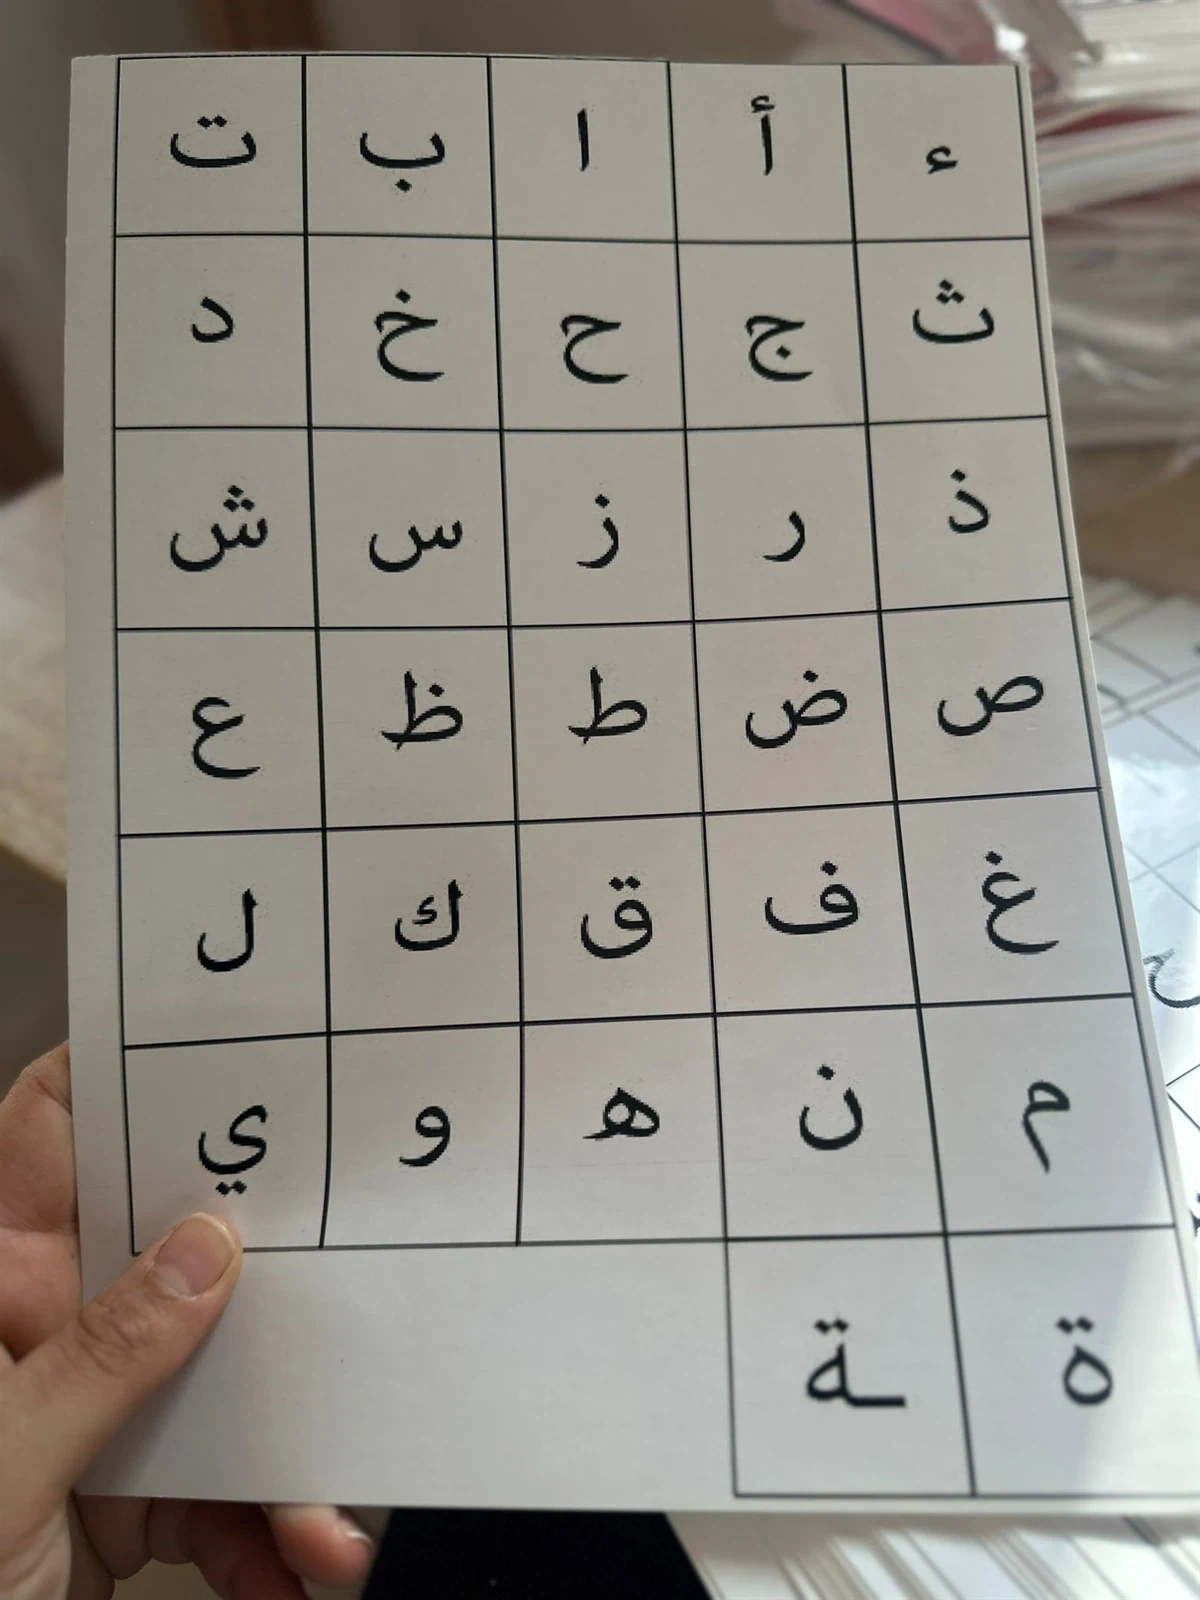 ء أ ا ب ت
ث ج ح خ د
ذ ر ز س ش
ص ض ط ظ ع
غ ف ق ك ل
م ن ه و ي
ة ـة